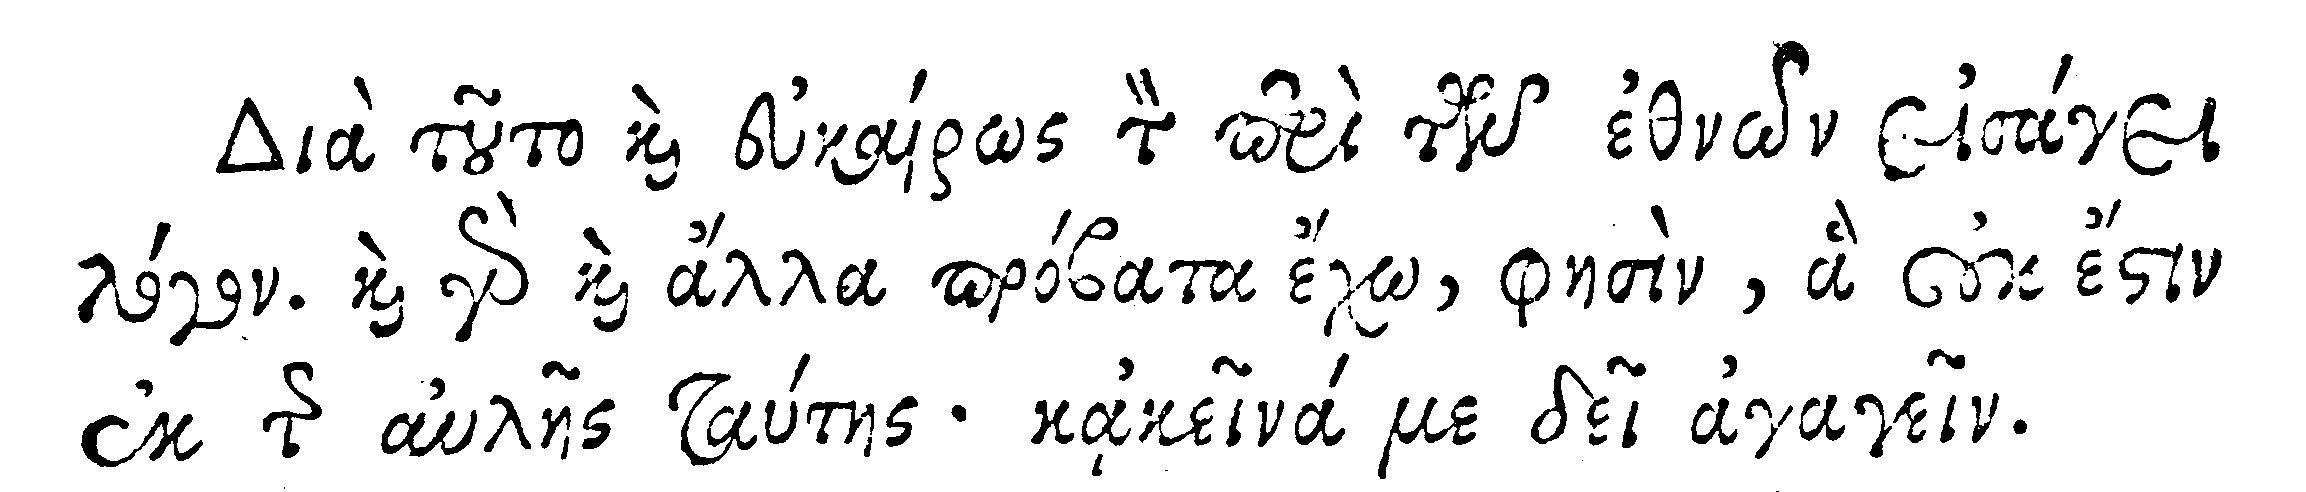 Διὰ τοῦτο καὶ εὐκαίρως τὸν περὶ τῶν ἐθνῶν εἰσάγει
λόγον. καὶ γὰρ καὶ ἄλλα πρόβατα ἔχω, φησὶν, ἃ οὐκ ἔστιν
ἐκ τῆς αὐλῆς ταύτης· κᾀκεῖνά με δεῖ ἀγαγεῖν.